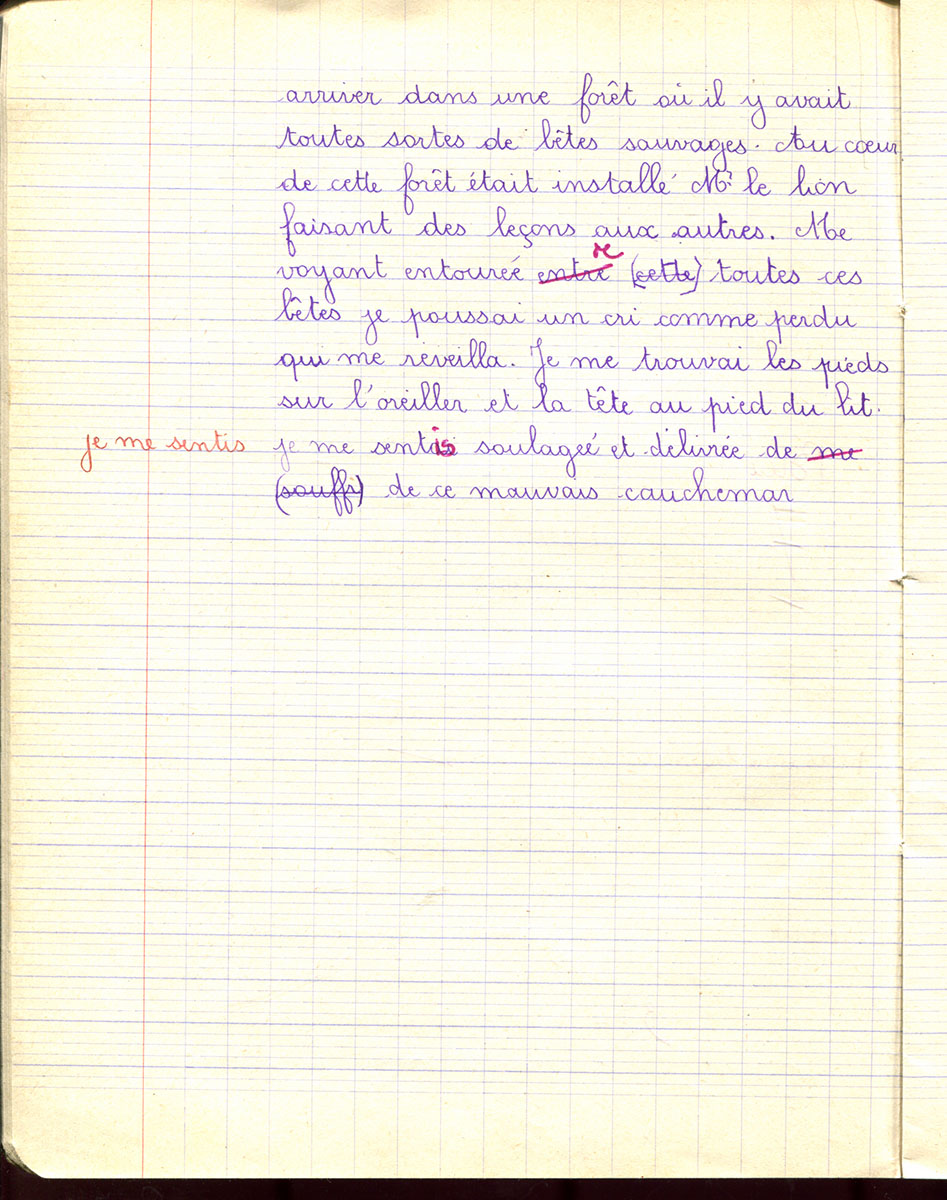 arriver dans une forêt où il y avait
toutes sortes de bêtes sauvages. Au cœur
de cette forêt était installé Mr le lion
faisant des leçons aux autres. Me
voyant entoureé entre (cette) toutes ces
bêtes je poussai un cri comme perdu
qui me reveilla. Je me trouvai les pieds
sur l'oreiller et la tête au pied du lit.
je me sentis je me sentis soulageé et délivrée de me
(souffr) de ce mauvais cauchemar